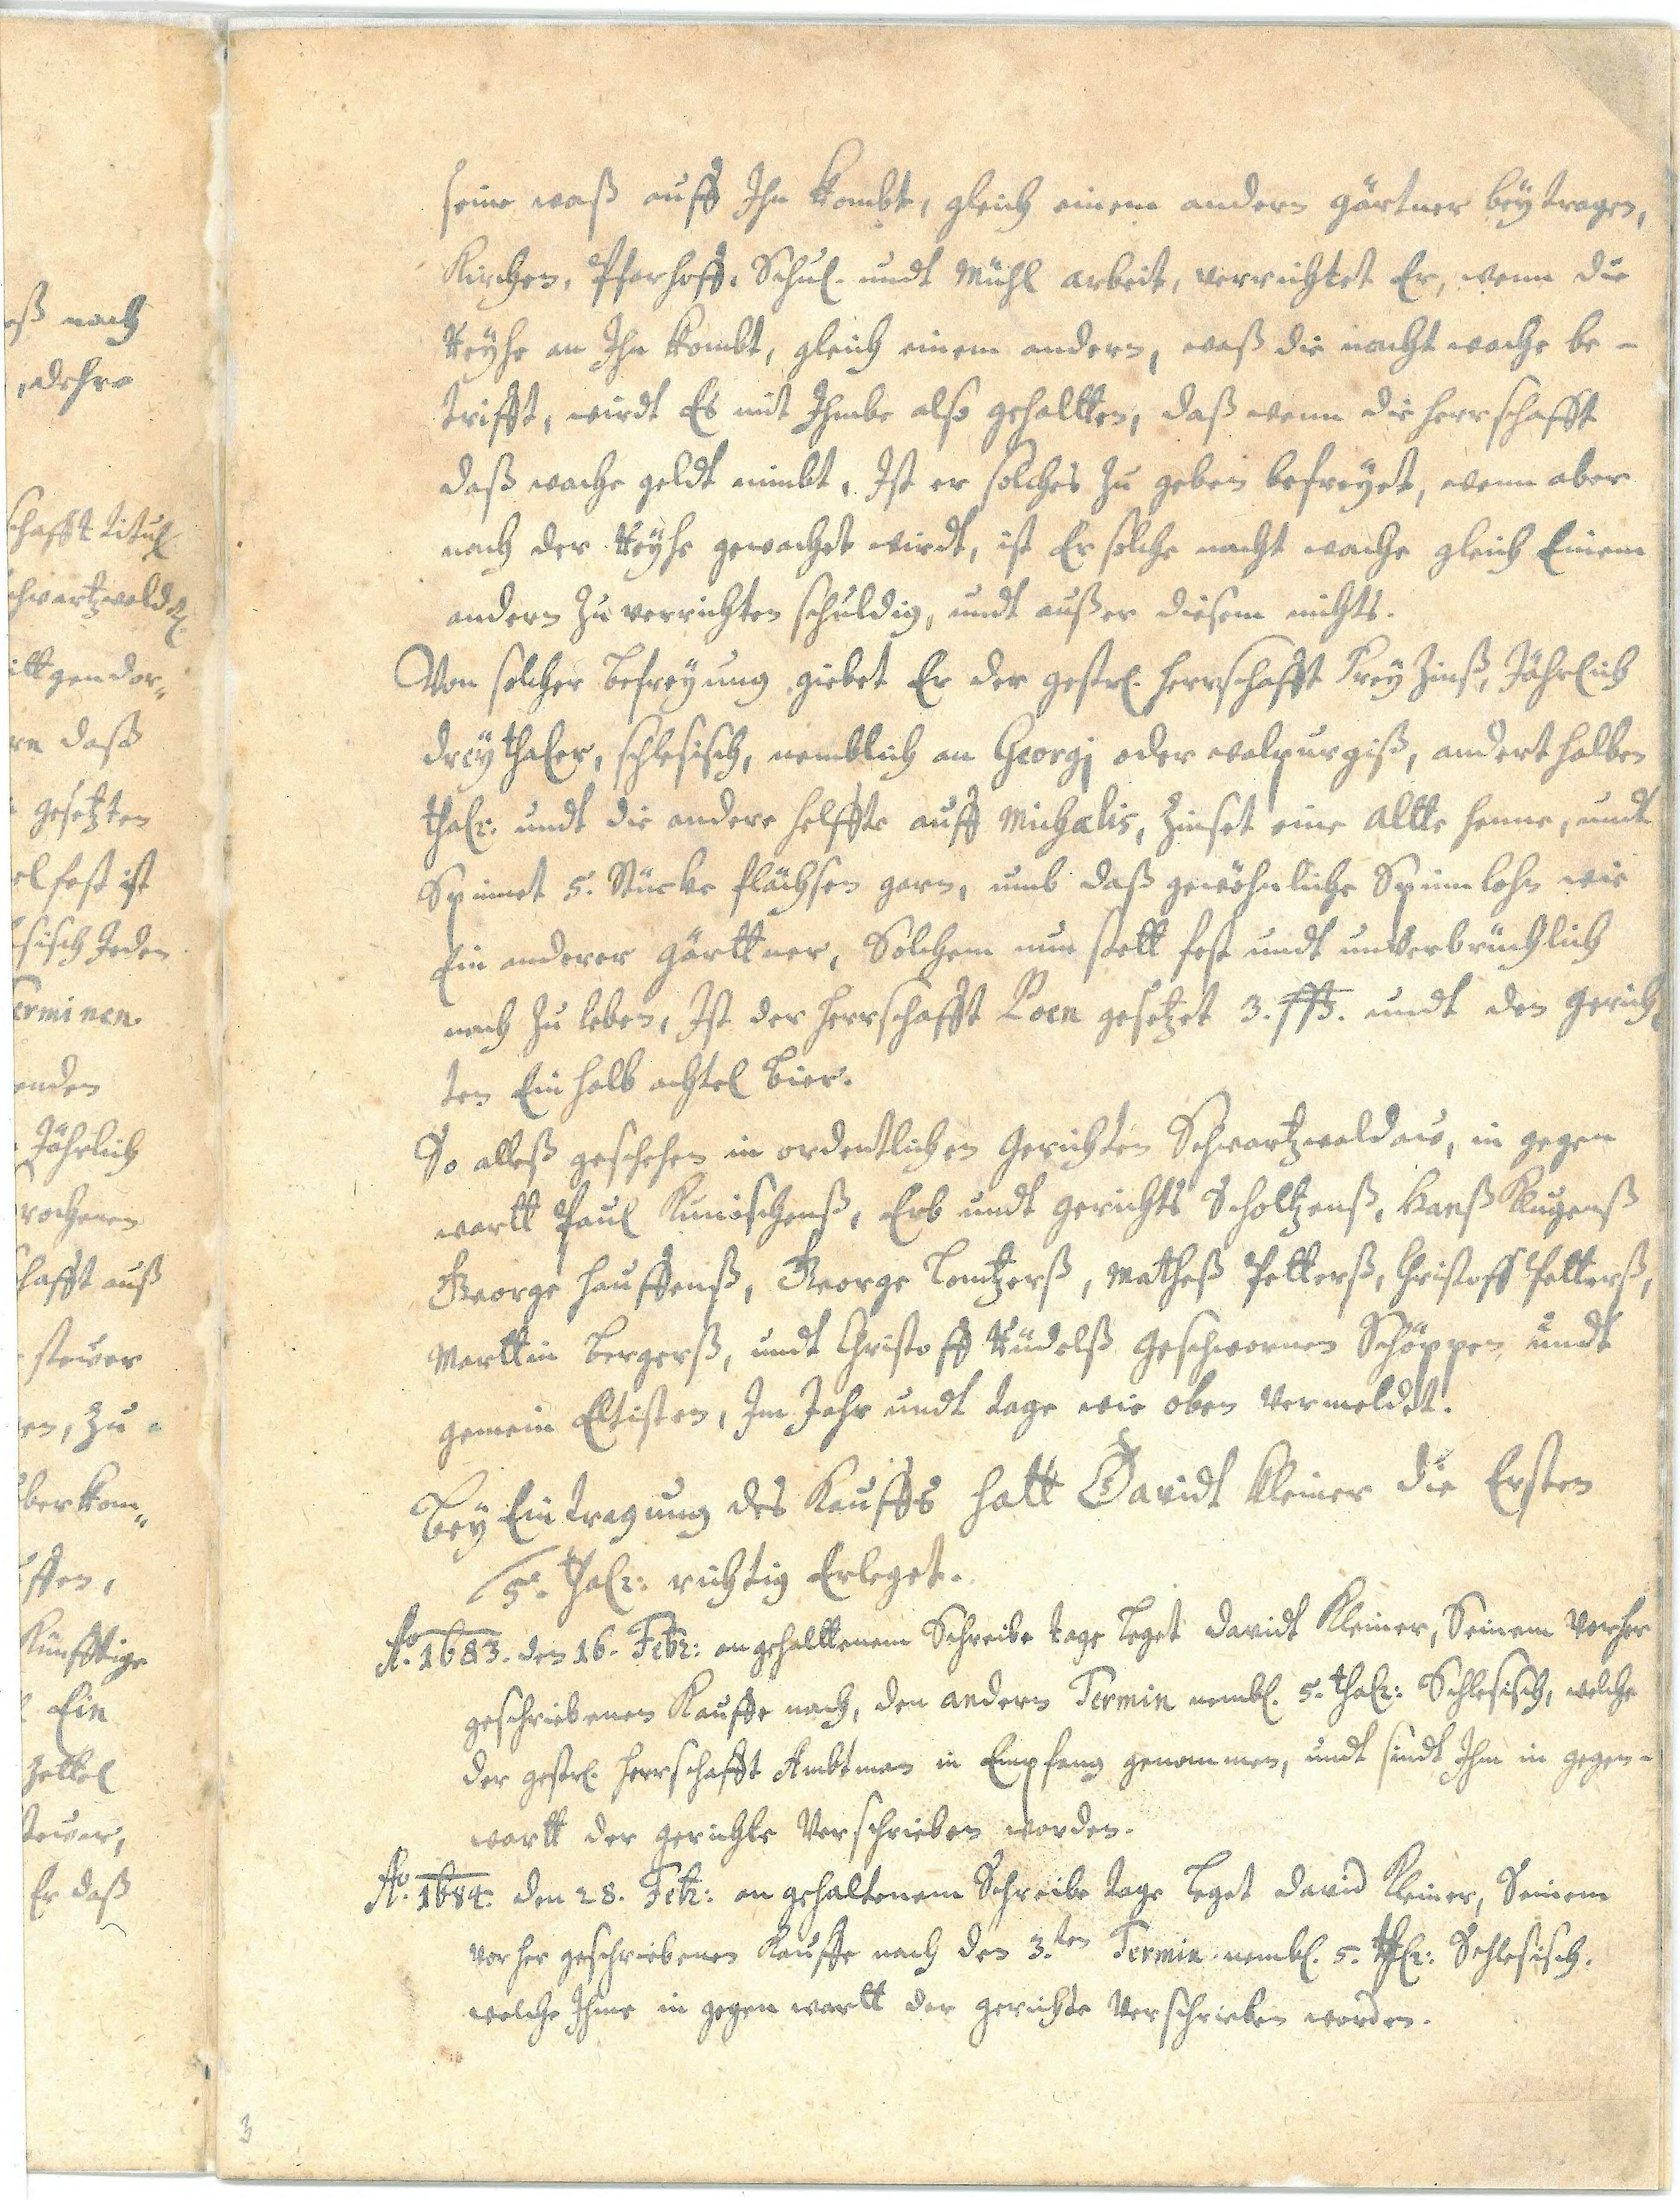 seine waß auff Ihn kombt, gleich einem andern gärtner beÿtragen,
Kirchen, Pfarhoff, Schul- undt Mühl arbeit, verrichtet Er, wenn die
Reÿhe an Ihn kombt, gleich einem andern, waß die nacht wache be-
trifft, wirdt Es mit Ihmbe also gehaltten, daß wenn die herrschafft
daß wache geldt nimbt, Ist er solches zu geben befreÿet, wenn aber
nach der Reÿhe gewachet wirdt, ist Er solche nacht wache gleich Einem
andern zu verrichten schuldig, undt außer diesem nichts.
Von solcher befreÿung giebet Er der gestr. herrschafft Freÿ Zinß, Jährlich
dreÿ thaler, schlesisch, nemblich an Georgi oder walpurgiß, anderthalben
thalr: undt die andere helffte auff Michaelis, Zinset eine Altte henne, undt
Spinnet 5. Stücke flächsen garn, umb daß gewöhnliche Spinnlohn wie
Ein anderer gärttner, Solchem nun stett fest undt unverbrüchlich
nach zu leben, Ist der herrschafft Poen gesetzet 3. undt den gerich-
ten Ein halb achtel bier.
So alleß geschehen in ordentlichen Gerichten Schwartzwaldau, in gegen
wartt Paul Kunischenß, Erb undt gerichts Scholtzenß, Hanß Klugenß
George hauffenß, George Lentzerß, Matheß Petterß, Christoff Petterß,
Marttin bergerß, undt Christoff Rüdelß geschwornen Schöppen undt
gemein Eltisten, Im Jahr undt tage wie oben vermeldet.
beÿ Eintragung des Kauffs hatt Davidt Kleiner die Ersten
5. thalr: richtig Erleget.
Ao. 1683. den 16. Febr: an gehalttenem Schreibe tage leget Davidt Kleiner, Seinem vorher
geschriebenen Kauffe nach, den andern Termin nembl. 5. thalr: Schlesisch, welche
der gestr. herrschafft Ambtman in Empfang genommen, undt sindt Ihm in gegen-
wartt der gerichte verschrieben worden.
Ao. 1684. den 28. Febr: an gehaltenem Schreibe tage leget David Kleiner, Seinem
vorher geschriebenen Kauffe nach den 3.ten Termin nembl. 5. thlr: Schlesisch.
welche Ihme in gegenwartt der gerichte verschrieben worden.
3